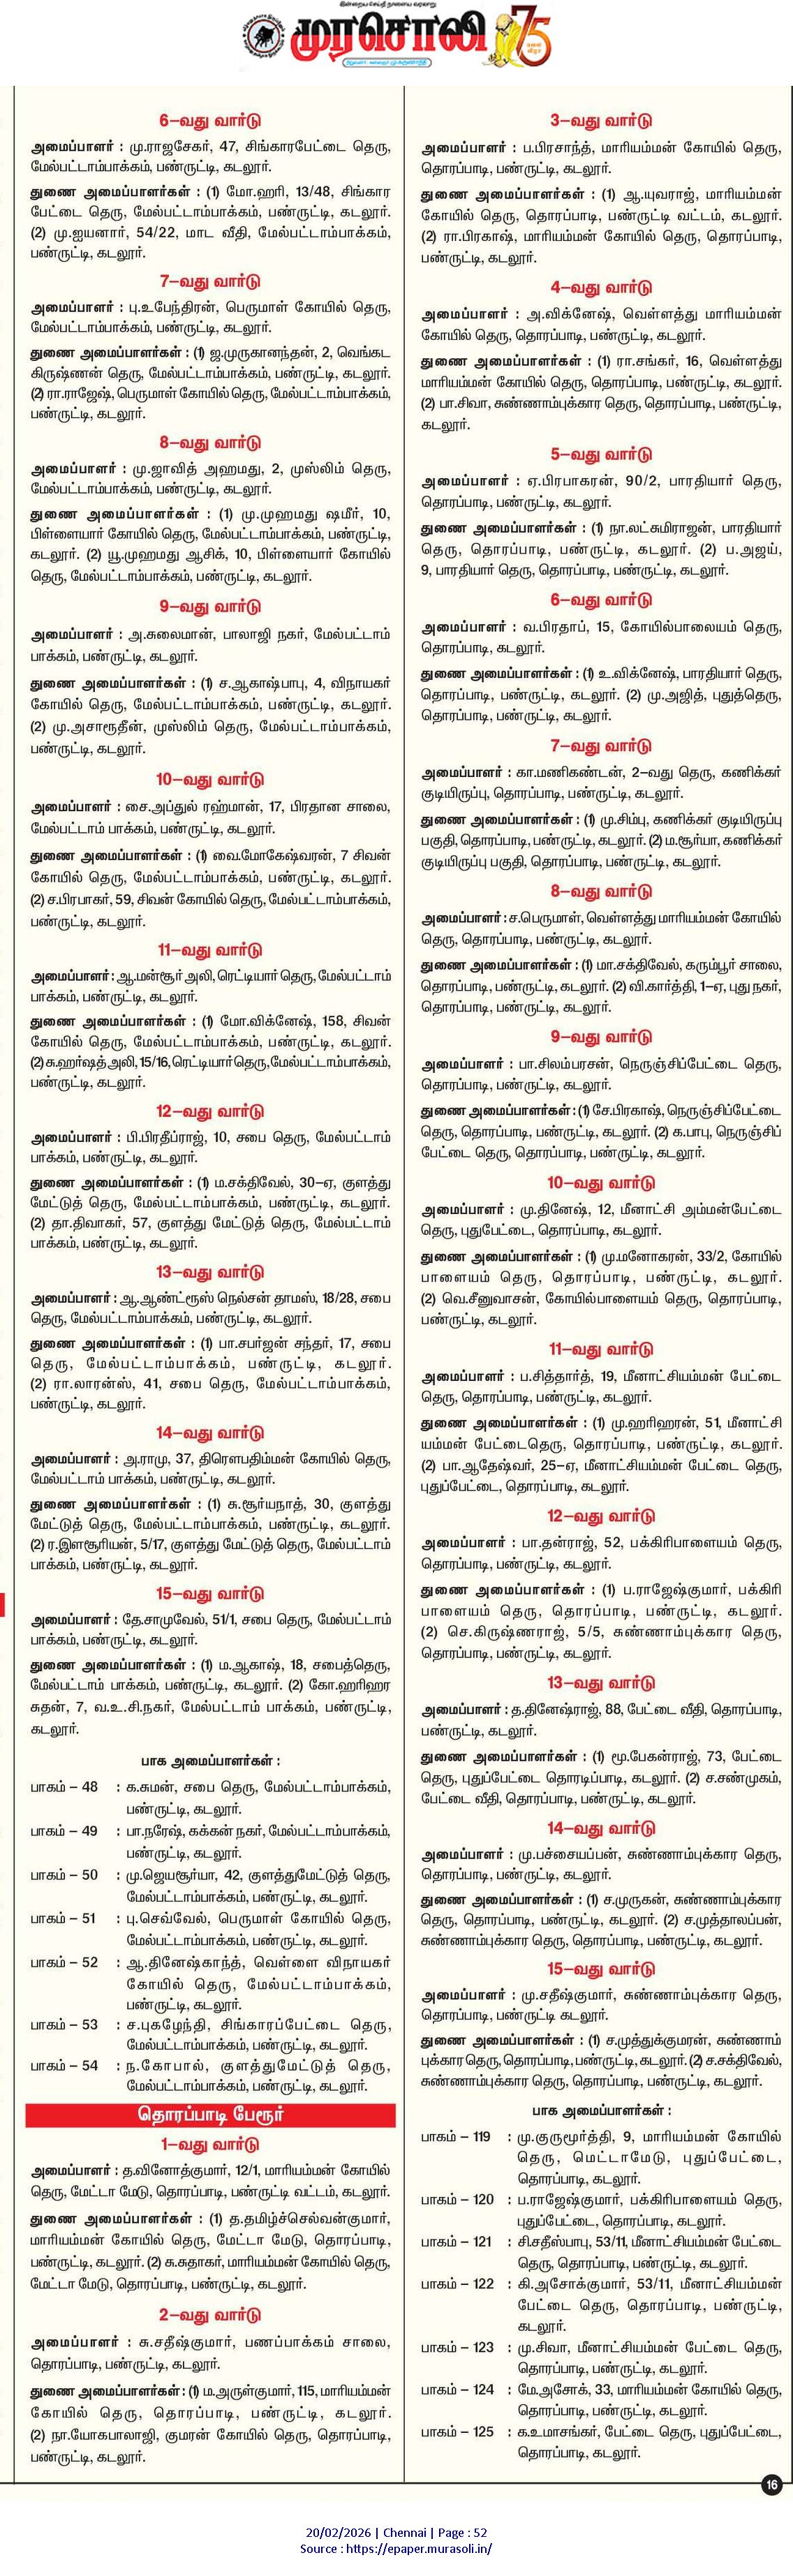 இன்றைய செய்தி நாளைய வரலாறு
முரசொலி 75
6–வது வார்டு
அமைப்பாளர் : மு.ராஜசேகர், 47, சிங்காரபேட்டை தெரு,
மேல்பட்டாம்பாக்கம், பண்ருட்டி, கடலூர்.
துணை அமைப்பாளர்கள் : (1) மோ.ஹரி, 13/48, சிங்கார
பேட்டை தெரு, மேல்பட்டாம்பாக்கம், பண்ருட்டி, கடலூர்.
(2) மு.ஐயனார், 54/22, மாட வீதி, மேல்பட்டாம்பாக்கம்,
பண்ருட்டி, கடலூர்.
7–வது வார்டு
அமைப்பாளர் : பு.உபேந்திரன், பெருமாள் கோயில் தெரு,
மேல்பட்டாம்பாக்கம், பண்ருட்டி, கடலூர்.
துணை அமைப்பாளர்கள் : (1) ஜ.முருகானந்தன், 2, வெங்கட
கிருஷ்ணன் தெரு, மேல்பட்டாம்பாக்கம், பண்ருட்டி, கடலூர்.
(2) ரா.ராஜேஷ், பெருமாள் கோயில் தெரு, மேல்பட்டாம்பாக்கம்,
பண்ருட்டி, கடலூர்.
8–வது வார்டு
அமைப்பாளர் : மு.ஜாவித் அஹமது, 2, முஸ்லிம் தெரு,
மேல்பட்டாம்பாக்கம், பண்ருட்டி, கடலூர்.
துணை அமைப்பாளர்கள் : (1) மு.முஹமது ஷமீர், 10,
பிள்ளையார் கோயில் தெரு, மேல்பட்டாம்பாக்கம், பண்ருட்டி,
கடலூர். (2) யூ.முஹமது ஆசிக், 10, பிள்ளையார் கோயில்
தெரு, மேல்பட்டாம்பாக்கம், பண்ருட்டி, கடலூர்.
9–வது வார்டு
அமைப்பாளர் : அ.சுலைமான், பாலாஜி நகர், மேல்பட்டாம்
பாக்கம், பண்ருட்டி, கடலூர்.
துணை அமைப்பாளர்கள் : (1) ச.ஆகாஷ்பாபு, 4, விநாயகர்
கோயில் தெரு, மேல்பட்டாம்பாக்கம், பண்ருட்டி, கடலூர்.
(2) மு.அசாரூதீன், முஸ்லிம் தெரு, மேல்பட்டாம்பாக்கம்,
பண்ருட்டி, கடலூர்.
10–வது வார்டு
அமைப்பாளர் : சை.அப்துல் ரஹ்மான், 17, பிரதான சாலை,
மேல்பட்டாம் பாக்கம், பண்ருட்டி, கடலூர்.
துணை அமைப்பாளர்கள் : (1) வை.மோகேஷ்வரன், 7 சிவன்
கோயில் தெரு, மேல்பட்டாம்பாக்கம், பண்ருட்டி, கடலூர்.
(2) ச.பிரபாகர், 59, சிவன் கோயில் தெரு, மேல்பட்டாம்பாக்கம்,
பண்ருட்டி, கடலூர்.
11–வது வார்டு
அமைப்பாளர் : ஆ.மன்சூர் அலி, ரெட்டியார் தெரு, மேல்பட்டாம்
பாக்கம், பண்ருட்டி, கடலூர்.
துணை அமைப்பாளர்கள் : (1) மோ.விக்னேஷ், 158, சிவன்
கோயில் தெரு, மேல்பட்டாம்பாக்கம், பண்ருட்டி, கடலூர்.
(2) சு.ஹர்ஷத் அலி, 15/16, ரெட்டியார் தெரு, மேல்பட்டாம்பாக்கம்,
பண்ருட்டி, கடலூர்.
12–வது வார்டு
அமைப்பாளர் : பி.பிரதீப்ராஜ், 10, சபை தெரு, மேல்பட்டாம்
பாக்கம், பண்ருட்டி, கடலூர்.
துணை அமைப்பாளர்கள் : (1) ம.சக்திவேல், 30–ஏ, குளத்து
மேட்டுத் தெரு, மேல்பட்டாம்பாக்கம், பண்ருட்டி, கடலூர்.
(2) தா.திவாகர், 57, குளத்து மேட்டுத் தெரு, மேல்பட்டாம்
பாக்கம், பண்ருட்டி, கடலூர்.
13–வது வார்டு
அமைப்பாளர் : ஆ.ஆண்ட்ரூஸ் நெல்சன் தாமஸ், 18/28, சபை
தெரு, மேல்பட்டாம்பாக்கம், பண்ருட்டி, கடலூர்.
துணை அமைப்பாளர்கள் : (1) பா.சபர்ஜன் சந்தர், 17, சபை
தெரு, மேல்பட்டாம்பாக்கம், பண்ருட்டி, கடலூர்.
(2) ரா.லாரன்ஸ், 41, சபை தெரு, மேல்பட்டாம்பாக்கம்,
பண்ருட்டி, கடலூர்.
14–வது வார்டு
அமைப்பாளர் : அ.ராமு, 37, திரௌபதிம்மன் கோயில் தெரு,
மேல்பட்டாம் பாக்கம், பண்ருட்டி, கடலூர்.
துணை அமைப்பாளர்கள் : (1) சு.சூர்யநாத், 30, குளத்து
மேட்டுத் தெரு, மேல்பட்டாம்பாக்கம், பண்ருட்டி, கடலூர்.
(2) ர.இளசூரியன், 5/17, குளத்து மேட்டுத் தெரு, மேல்பட்டாம்
பாக்கம், பண்ருட்டி, கடலூர்.
15–வது வார்டு
அமைப்பாளர் : தே.சாமுவேல், 51/1, சபை தெரு, மேல்பட்டாம்
பாக்கம், பண்ருட்டி, கடலூர்.
துணை அமைப்பாளர்கள் : (1) ம.ஆகாஷ், 18, சபைத்தெரு,
மேல்பட்டாம் பாக்கம், பண்ருட்டி, கடலூர். (2) கோ.ஹரிஹர
சுதன், 7, வ.உ.சி.நகர், மேல்பட்டாம் பாக்கம், பண்ருட்டி,
கடலூர்.
பாக அமைப்பாளர்கள் :
பாகம் – 48 : க.சுமன், சபை தெரு, மேல்பட்டாம்பாக்கம்,
பண்ருட்டி, கடலூர்.
பாகம் – 49 : பா.நரேஷ், கக்கன் நகர், மேல்பட்டாம்பாக்கம்,
பண்ருட்டி, கடலூர்.
பாகம் – 50 : மு.ஜெயசூர்யா, 42, குளத்துமேட்டுத் தெரு,
மேல்பட்டாம்பாக்கம், பண்ருட்டி, கடலூர்.
பாகம் – 51 : பு.செவ்வேல், பெருமாள் கோயில் தெரு,
மேல்பட்டாம்பாக்கம், பண்ருட்டி, கடலூர்.
பாகம் – 52 : ஆ.தினேஷ்காந்த், வெள்ளை விநாயகர்
கோயில் தெரு, மேல்பட்டாம்பாக்கம்,
பண்ருட்டி, கடலூர்.
பாகம் – 53 : ச.புகழேந்தி, சிங்காரப்பேட்டை தெரு,
மேல்பட்டாம்பாக்கம், பண்ருட்டி, கடலூர்.
பாகம் – 54 : ந.கோபால், குளத்துமேட்டுத் தெரு,
மேல்பட்டாம்பாக்கம், பண்ருட்டி, கடலூர்.
தொரப்பாடி பேரூர்
1–வது வார்டு
அமைப்பாளர் : த.வினோத்குமார், 12/1, மாரியம்மன் கோயில்
தெரு, மேட்டா மேடு, தொரப்பாடி, பண்ருட்டி வட்டம், கடலூர்.
துணை அமைப்பாளர்கள் : (1) த.தமிழ்ச்செல்வன்குமார்,
மாரியம்மன் கோயில் தெரு, மேட்டா மேடு, தொரப்பாடி,
பண்ருட்டி, கடலூர். (2) சு.சுதாகர், மாரியம்மன் கோயில் தெரு,
மேட்டா மேடு, தொரப்பாடி, பண்ருட்டி, கடலூர்.
2–வது வார்டு
அமைப்பாளர் : சு.சதீஷ்குமார், பணப்பாக்கம் சாலை,
தொரப்பாடி, பண்ருட்டி, கடலூர்.
துணை அமைப்பாளர்கள் : (1) ம.அருள்குமார், 115, மாரியம்மன்
கோயில் தெரு, தொரப்பாடி, பண்ருட்டி, கடலூர்.
(2) நா.யோகபாலாஜி, குமரன் கோயில் தெரு, தொரப்பாடி,
பண்ருட்டி, கடலூர்.
3–வது வார்டு
அமைப்பாளர் : ப.பிரசாந்த், மாரியம்மன் கோயில் தெரு,
தொரப்பாடி, பண்ருட்டி, கடலூர்.
துணை அமைப்பாளர்கள் : (1) ஆ.யுவராஜ், மாரியம்மன்
கோயில் தெரு, தொரப்பாடி, பண்ருட்டி வட்டம், கடலூர்.
(2) ரா.பிரகாஷ், மாரியம்மன் கோயில் தெரு, தொரப்பாடி,
பண்ருட்டி, கடலூர்.
4–வது வார்டு
அமைப்பாளர் : அ.விக்னேஷ், வெள்ளத்து மாரியம்மன்
கோயில் தெரு, தொரப்பாடி, பண்ருட்டி, கடலூர்.
துணை அமைப்பாளர்கள் : (1) ரா.சங்கர், 16, வெள்ளத்து
மாரியம்மன் கோயில் தெரு, தொரப்பாடி, பண்ருட்டி, கடலூர்.
(2) பா.சிவா, சுண்ணாம்புக்கார தெரு, தொரப்பாடி, பண்ருட்டி,
கடலூர்.
5–வது வார்டு
அமைப்பாளர் : ஏ.பிரபாகரன், 90/2, பாரதியார் தெரு,
தொரப்பாடி, பண்ருட்டி, கடலூர்.
துணை அமைப்பாளர்கள் : (1) நா.லட்சுமிராஜன், பாரதியார்
தெரு, தொரப்பாடி, பண்ருட்டி, கடலூர். (2) ப.அஜய்,
9, பாரதியார் தெரு, தொரப்பாடி, பண்ருட்டி, கடலூர்.
6–வது வார்டு
அமைப்பாளர் : வ.பிரதாப், 15, கோயில்பாலையம் தெரு,
தொரப்பாடி, பண்ருட்டி, கடலூர்.
துணை அமைப்பாளர்கள் : (1) உ.விக்னேஷ், பாரதியார் தெரு,
தொரப்பாடி, பண்ருட்டி, கடலூர். (2) மு.அஜித், புதுத்தெரு,
தொரப்பாடி, பண்ருட்டி, கடலூர்.
7–வது வார்டு
அமைப்பாளர் : கா.மணிகண்டன், 2–வது தெரு, கணிக்கர்
குடியிருப்பு, தொரப்பாடி, பண்ருட்டி, கடலூர்.
துணை அமைப்பாளர்கள் : (1) மு.சிம்பு, கணிக்கர் குடியிருப்பு
பகுதி, தொரப்பாடி, பண்ருட்டி, கடலூர். (2) ம.சூர்யா, கணிக்கர்
குடியிருப்பு பகுதி, தொரப்பாடி, பண்ருட்டி, கடலூர்.
8–வது வார்டு
அமைப்பாளர் : ச.பெருமாள், வெள்ளத்து மாரியம்மன் கோயில்
தெரு, தொரப்பாடி, பண்ருட்டி, கடலூர்.
துணை அமைப்பாளர்கள் : (1) மா.சக்திவேல், கரும்பூர் சாலை,
தொரப்பாடி, பண்ருட்டி, கடலூர். (2) வி.கார்த்தி, 1–ஏ, புது நகர்,
தொரப்பாடி, பண்ருட்டி, கடலூர்.
9–வது வார்டு
அமைப்பாளர் : பா.சிலம்பரசன், நெருஞ்சிப்பேட்டை தெரு,
தொரப்பாடி, பண்ருட்டி, கடலூர்.
துணை அமைப்பாளர்கள் : (1) சே.பிரகாஷ், நெருஞ்சிப்பேட்டை
தெரு, தொரப்பாடி, பண்ருட்டி, கடலூர். (2) க.பாபு, நெருஞ்சிப்
பேட்டை தெரு, தொரப்பாடி, பண்ருட்டி, கடலூர்.
10–வது வார்டு
அமைப்பாளர் : மு.தினேஷ், 12, மீனாட்சி அம்மன்பேட்டை
தெரு, புதுபேட்டை, தொரப்பாடி, கடலூர்.
துணை அமைப்பாளர்கள் : (1) மு.மனோகரன், 33/2, கோயில்
பாளையம் தெரு, தொரப்பாடி, பண்ருட்டி, கடலூர்.
(2) வெ.சீனுவாசன், கோயில்பாளையம் தெரு, தொரப்பாடி,
பண்ருட்டி, கடலூர்.
11–வது வார்டு
அமைப்பாளர் : ப.சித்தார்த், 19, மீனாட்சியம்மன் பேட்டை
தெரு, தொரப்பாடி, பண்ருட்டி, கடலூர்.
துணை அமைப்பாளர்கள் : (1) மு.ஹரிஹரன், 51, மீனாட்சி
யம்மன் பேட்டைதெரு, தொரப்பாடி, பண்ருட்டி, கடலூர்.
(2) பா.ஆதேஷ்வர், 25–ஏ, மீனாட்சியம்மன் பேட்டை தெரு,
புதுப்பேட்டை, தொரப்பாடி, கடலூர்.
12–வது வார்டு
அமைப்பாளர் : பா.தன்ராஜ், 52, பக்கிரிபாளையம் தெரு,
தொரப்பாடி, பண்ருட்டி, கடலூர்.
துணை அமைப்பாளர்கள் : (1) ப.ராஜேஷ்குமார், பக்கிரி
பாளையம் தெரு, தொரப்பாடி, பண்ருட்டி, கடலூர்.
(2) செ.கிருஷ்ணராஜ், 5/5, சுண்ணாம்புக்கார தெரு,
தொரப்பாடி, பண்ருட்டி, கடலூர்.
13–வது வார்டு
அமைப்பாளர் : த.தினேஷ்ராஜ், 88, பேட்டை வீதி, தொரப்பாடி,
பண்ருட்டி, கடலூர்.
துணை அமைப்பாளர்கள் : (1) மூ.பேகன்ராஜ், 73, பேட்டை
தெரு, புதுப்பேட்டை தொரடிப்பாடி, கடலூர். (2) ச.சண்முகம்,
பேட்டை வீதி, தொரப்பாடி, பண்ருட்டி, கடலூர்.
14–வது வார்டு
அமைப்பாளர் : மு.பச்சையப்பன், சுண்ணாம்புக்கார தெரு,
தொரப்பாடி, பண்ருட்டி, கடலூர்.
துணை அமைப்பாளர்கள் : (1) ச.முருகன், சுண்ணாம்புக்கார
தெரு, தொரப்பாடி, பண்ருட்டி, கடலூர். (2) ச.முத்தாலப்பன்,
சுண்ணாம்புக்கார தெரு, தொரப்பாடி, பண்ருட்டி, கடலூர்.
15–வது வார்டு
அமைப்பாளர் : மு.சதீஷ்குமார், சுண்ணாம்புக்கார தெரு,
தொரப்பாடி, பண்ருட்டி கடலூர்.
துணை அமைப்பாளர்கள் : (1) ச.முத்துக்குமரன், சுண்ணாம்
புக்கார தெரு, தொரப்பாடி, பண்ருட்டி, கடலூர். (2) ச.சக்திவேல்,
சுண்ணாம்புக்கார தெரு, தொரப்பாடி, பண்ருட்டி, கடலூர்.
பாக அமைப்பாளர்கள் :
பாகம் – 119 : மு.குருமூர்த்தி, 9, மாரியம்மன் கோயில்
தெரு, மெட்டாமேடு, புதுப்பேட்டை,
தொரப்பாடி, கடலூர்.
பாகம் – 120 : ப.ராஜேஷ்குமார், பக்கிரிபாளையம் தெரு,
புதுப்பேட்டை, தொரப்பாடி, கடலூர்.
பாகம் – 121 : சி.சதீஸ்பாபு, 53/11, மீனாட்சியம்மன் பேட்டை
தெரு, தொரப்பாடி, பண்ருட்டி, கடலூர்.
பாகம் – 122 : கி.அசோக்குமார், 53/11, மீனாட்சியம்மன்
பேட்டை தெரு, தொரப்பாடி, பண்ருட்டி,
கடலூர்.
பாகம் – 123 : மு.சிவா, மீனாட்சியம்மன் பேட்டை தெரு,
தொரப்பாடி, பண்ருட்டி, கடலூர்.
பாகம் – 124 : மே.அசோக், 33, மாரியம்மன் கோயில் தெரு,
தொரப்பாடி, பண்ருட்டி, கடலூர்.
பாகம் – 125 : க.உமாசங்கர், பேட்டை தெரு, புதுப்பேட்டை,
தொரப்பாடி, கடலூர்.
16
20/02/2026 | Chennai | Page : 52
Source : https://epaper.murasoli.in/